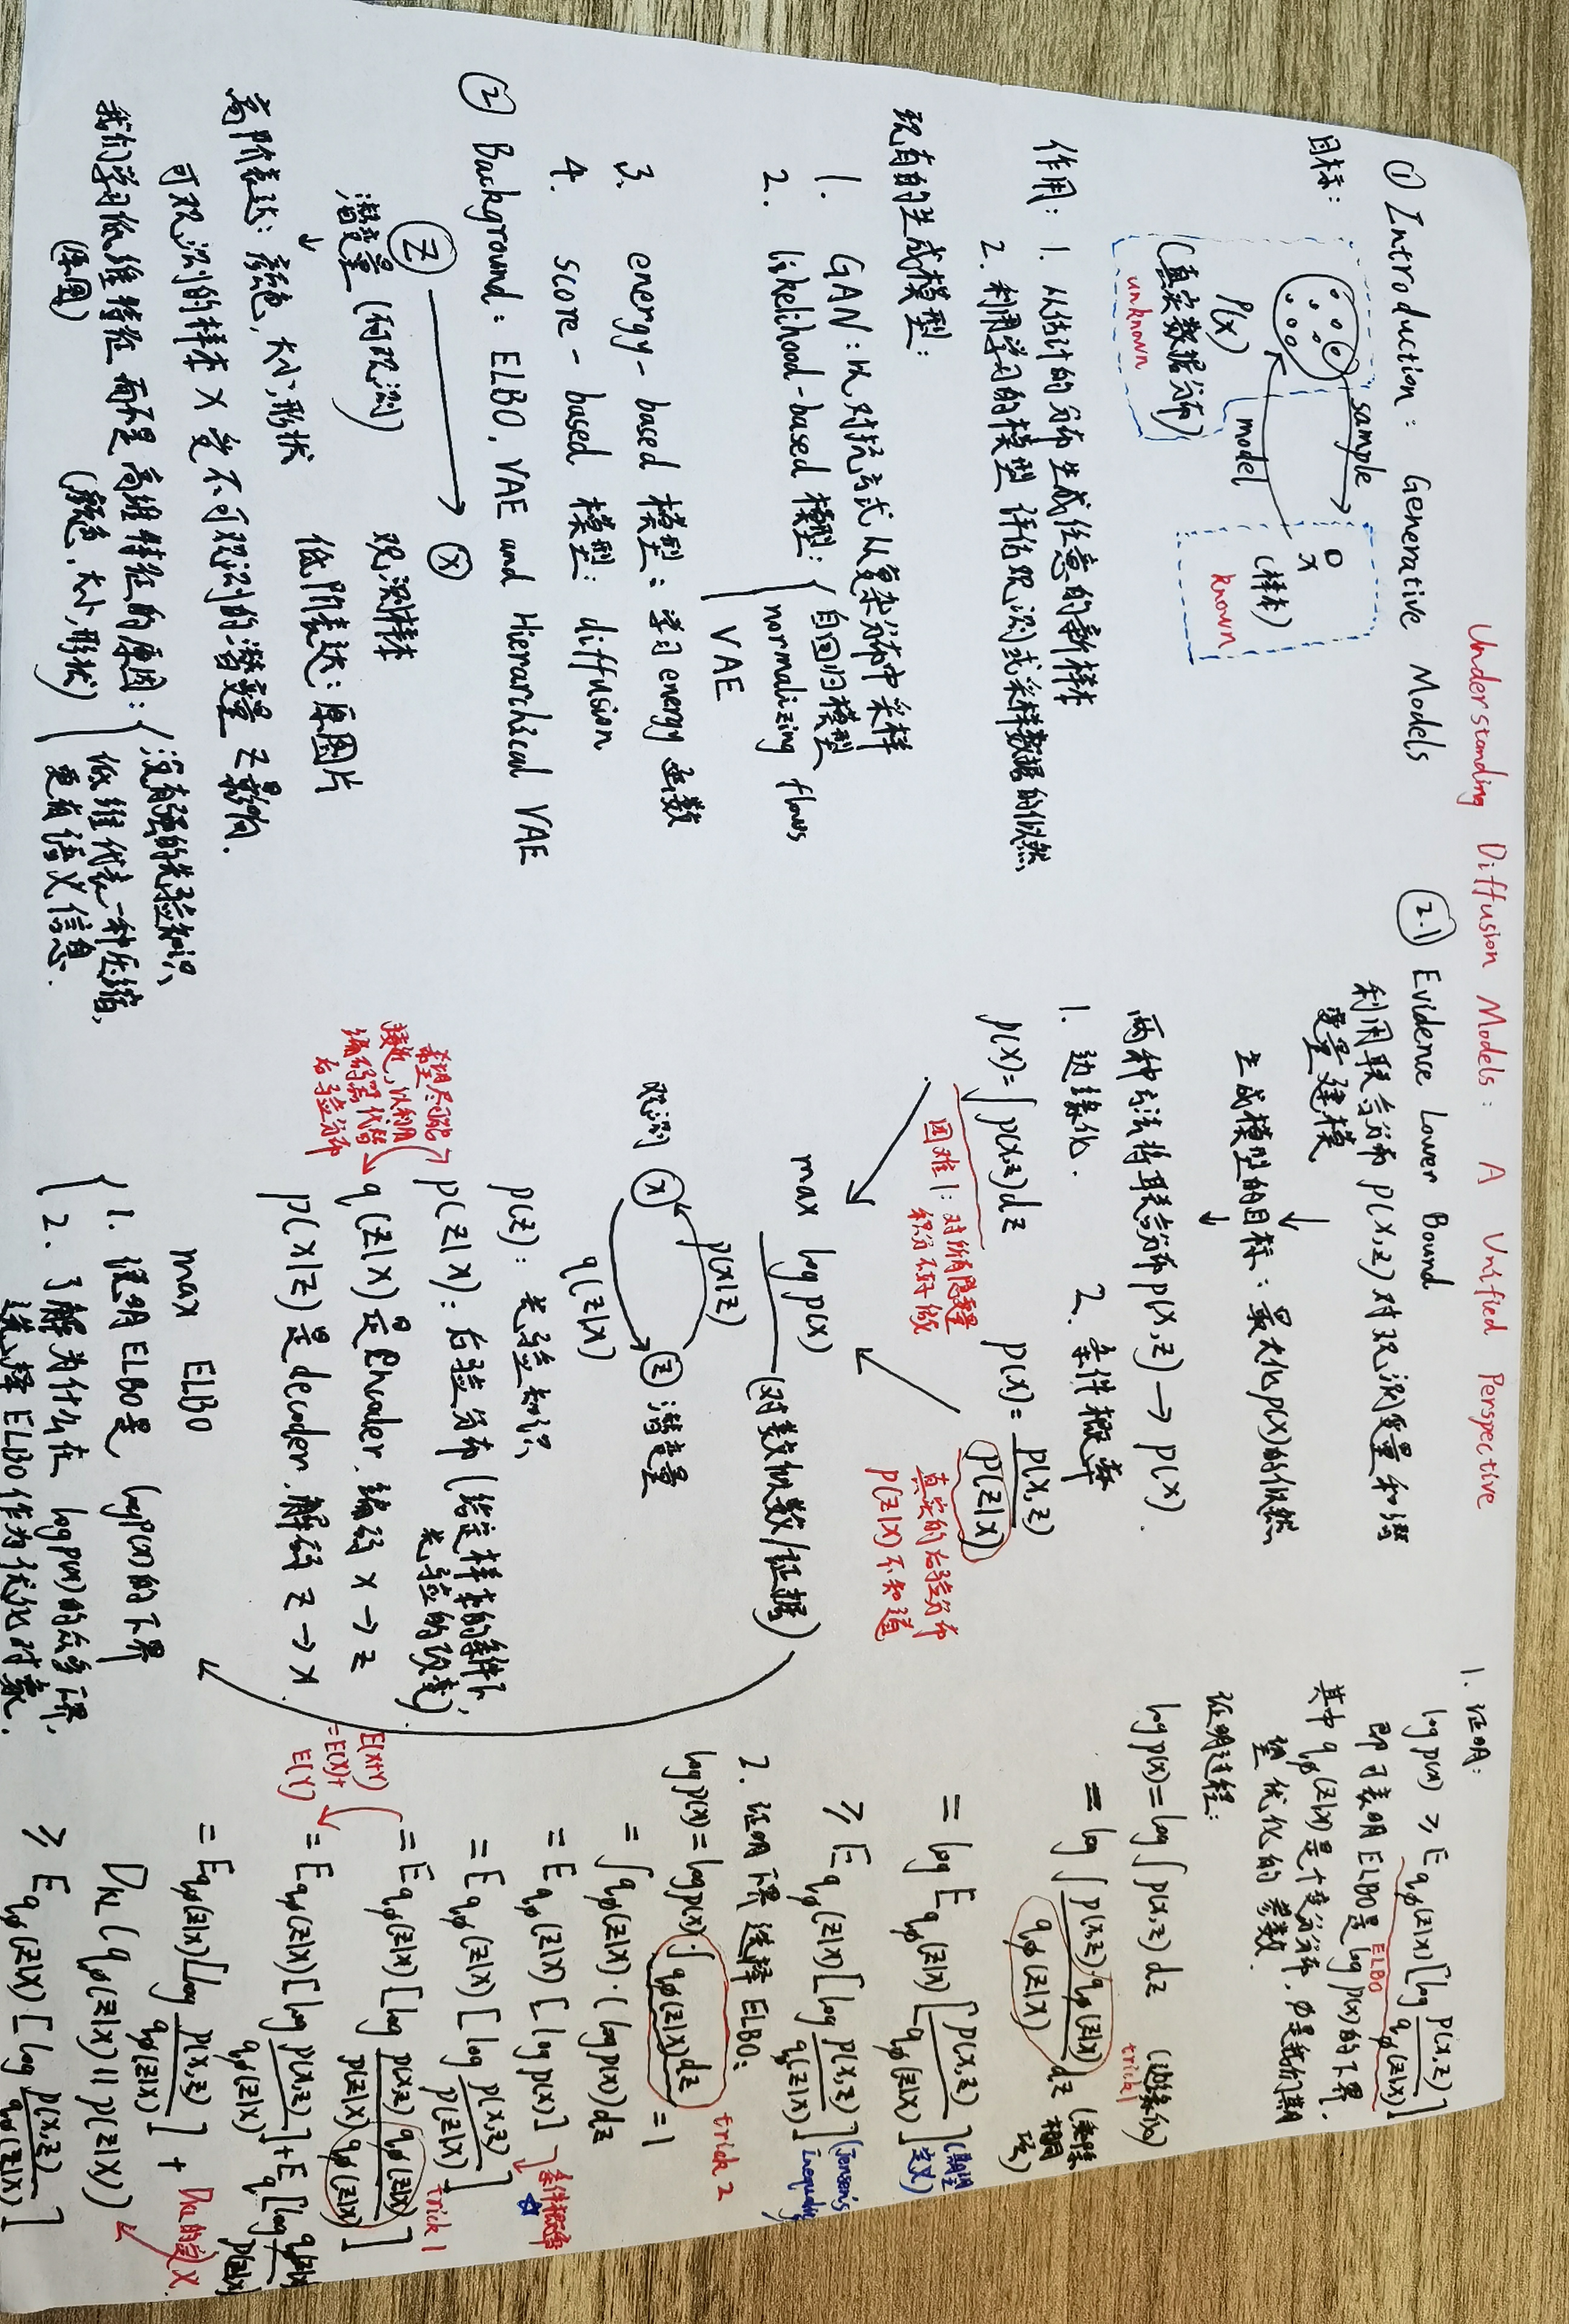 Understanding Diffusion Models: A Unified Perspective
① Introduction: Generative Models
目标:
sample
model
P(x)
(真实数据分布)
unknown
D
X
(样本)
known
作用: 1. 从估计的分布生成任意的新样本
2. 利用学习的模型评估观测或采样数据的似然
现有的生成模型:
1. GAN: 以对抗方式从复杂分布中采样
2. likelihood-based 模型: { 自回归模型
normalizing flows
VAE
3. energy-based 模型: 学习energy函数
4. score-based 模型: diffusion
② Background: ELBO, VAE and Hierarchical VAE
Z
X
潜变量(不可观测)
观测样本
高阶表达: 颜色, 大小, 形状
低阶表达: 原图片
可观测的样本 X 受不可观测的潜变量 Z 影响.
我们学习低维特征而不是高维特征的原因: { 没有强的先验知识
(原图)
(颜色, 大小, 形状)
低维代表一种压缩,
更有语义信息.
2.1 Evidence Lower Bound
利用联合分布 p(x,z) 对观测变量和潜
变量建模
生成模型的目标: 最大化p(x)的似然
两种方法将联合分布 p(x,z) → p(x).
1. 边缘化.
p(x)=∫p(x,z)dz
困难1: 对所有隐变量
积分不好做
2. 条件概率
p(x)= p(x,z) / p(z|x)
真实的后验分布
p(z|x)不知道
max log p(x) (对数似然/证据)
观测 x
p(x|z)
q(z|x)
z 潜变量
p(z): 先验知识
p(z|x): 后验分布(给定样本的条件下,
先验的改变)
q(z|x)是Encoder, 编码 x → z
p(x|z)是decoder, 解码 z → x.
希望尽可能
接近, 以利用
编码器代替
后验分布
max ELBO
1. 证明ELBO是 log p(x)的下界
2. 了解为什么在 log p(x)的众多下界,
选择ELBO作为优化对象.
1. 证明:
log p(x) ≥ E qφ(z|x)[log p(x,z) / qφ(z|x)]
ELBO
即可表明ELBO是log p(x)的下界.
其中 qφ(z|x)是个变分分布, φ是我们期
望优化的参数.
证明过程:
log p(x)=log∫p(x,z)dz (边缘化)
= log∫ p(x,z)·qφ(z|x) / qφ(z|x) dz (乘除相同项)
trick1
= log E qφ(z|x) [p(x,z) / qφ(z|x)] (期望定义)
≥ E qφ(z|x) [log p(x,z) / qφ(z|x)] (Jensen's inequality)
2. 证明下界选择ELBO:
log p(x) = log p(x)·∫qφ(z|x)dz =1
trick 2
= ∫qφ(z|x)·(log p(x))dz
= E qφ(z|x) [log p(x)]
条件概率 ☆
= E qφ(z|x) [log p(x,z) / p(z|x)]
= E qφ(z|x) [log p(x,z) qφ(z|x) / p(z|x) qφ(z|x)]
trick 1
E(x+Y)
=E(x)+
E(Y)
= E qφ(z|x) [log p(x,z) / qφ(z|x)] + E q [log qφ(z|x) / p(z|x)]
= E qφ(z|x)[log p(x,z) / qφ(z|x)] +
DKL(qφ(z|x)||p(z|x))
DKL的定义
≥ E qφ(z|x)[log p(x,z) / qφ(z|x)]